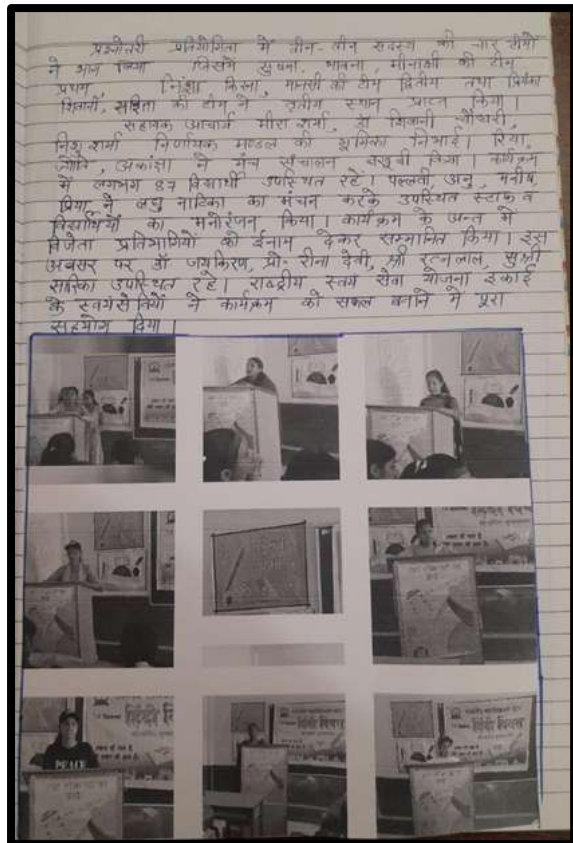 प्रश्नोत्तरी प्रतियोगिता में तीन-तीन सदस्य की चार टीमों
ने भाग लिया जिसमें सुषमा, भावना, मीनाक्षी की टीम
प्रथम, निशा, मानसी की टीम द्वितीय तथा प्रियंका
शिवानी, सरिता की टीम ने तृतीय स्थान प्राप्त किया।
सहायक आचार्य मीरा शर्मा, डॉ शिवानी चौधरी,
निशु शर्मा निर्णायक मण्डल की भूमिका निभाई। रिया,
ज्योति, अकांक्षा ने मंच संचालन बखूबी किया। कार्यक्रम
में लगभग 87 विद्यार्थी उपस्थित रहें। पल्लवी, अनु, मनीष,
प्रिया ने लघु नाटिका का मंचन करके उपस्थित स्टाफ व
विद्यार्थियों का मनोरंजन किया। कार्यक्रम के अन्त में
विजेता प्रतिभागियों को ईनाम देकर सम्मानित किया। इस
अवसर पर डॉ जयकिरण, प्रो० रीना देवी, श्री रत्न लाल, सुश्री
सारिका उपस्थित रहे। राष्ट्रीय स्वयं सेवा योजना इकाई
के स्वयंसेवियों ने कार्यक्रम को सफल बनाने में पूरा
सहयोग दिया।
हिन्दी दि
हिन्दी दिवस
हिन्दी दिवस
PEACE